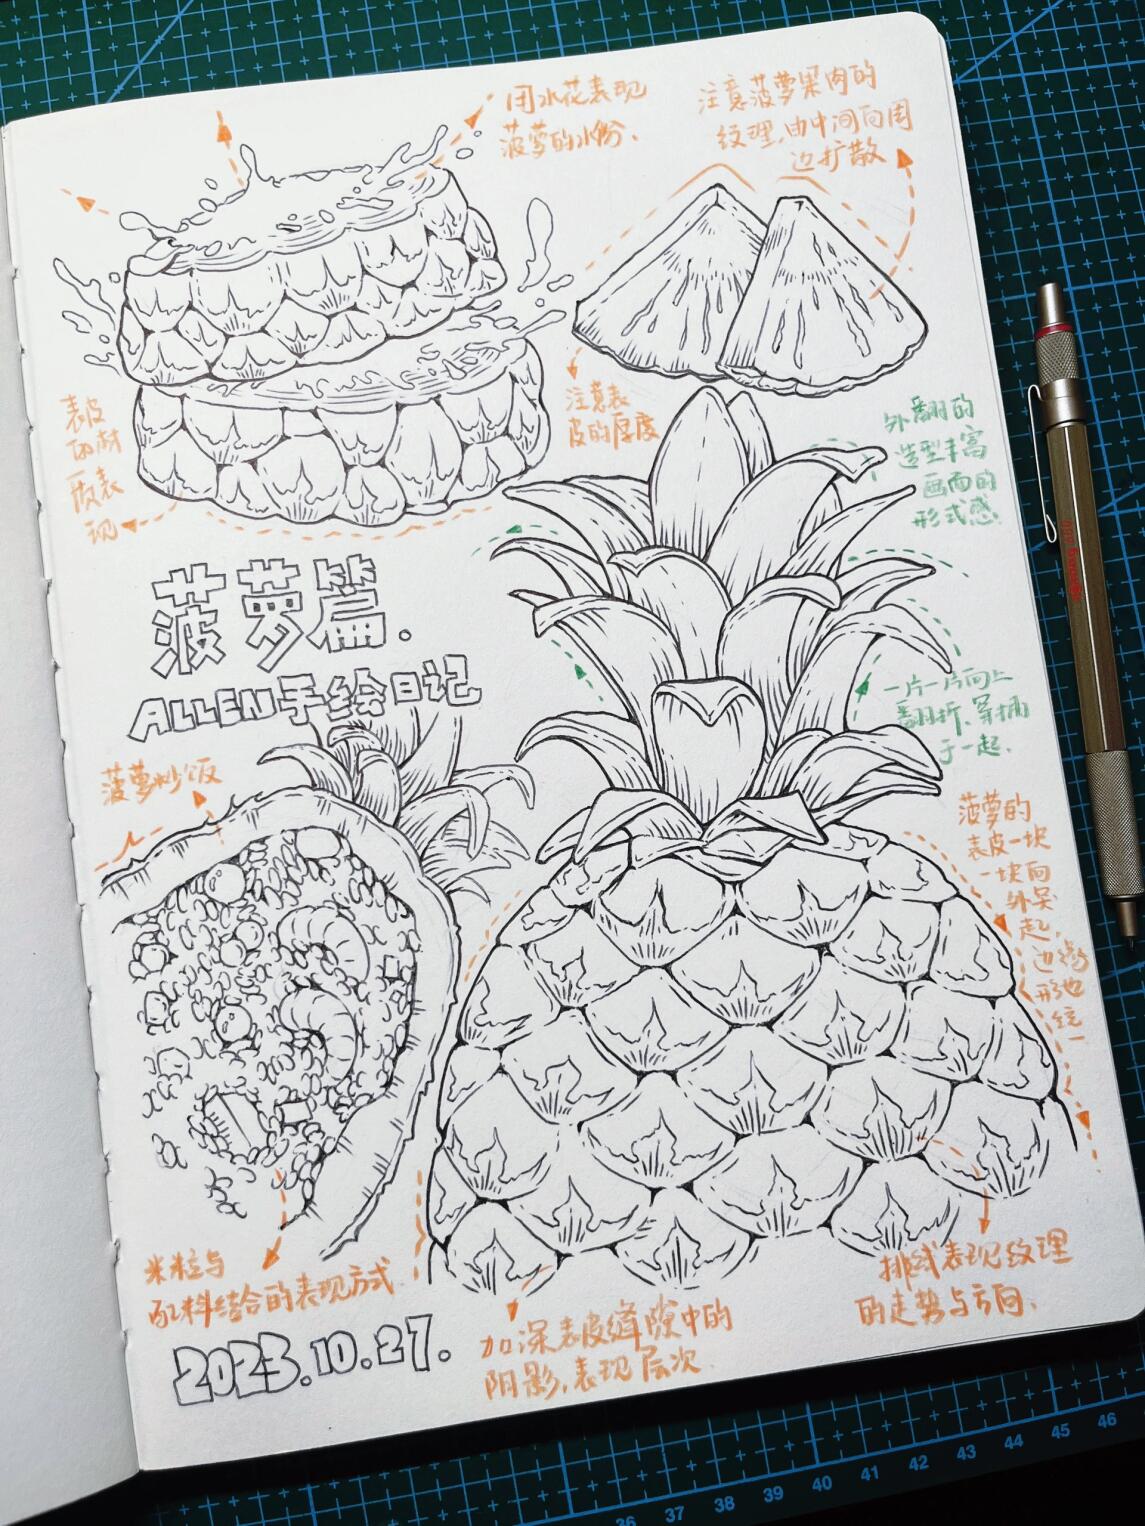 用水花表现
菠萝的水份、
注意菠萝果肉的
纹理,由中间向周
边扩散
表皮
的材
质表
现
注意表
皮的厚度
外翻的
造型丰富
画面的
形式感
菠萝篇.
ALLEN手绘日记
一片一片向上
翻折、簇拥
于一起.
菠萝炒饭
菠萝的
表皮一块
一块向
外突
起,
边缘
形也
统一
米粒与
配料结合的表现方式
排线表现纹理
的走势与方向、
加深表皮缝隙中的
阴影,表现层次.
2023.10.27.
36 37 38 39 40 41 42 43 44 45 46